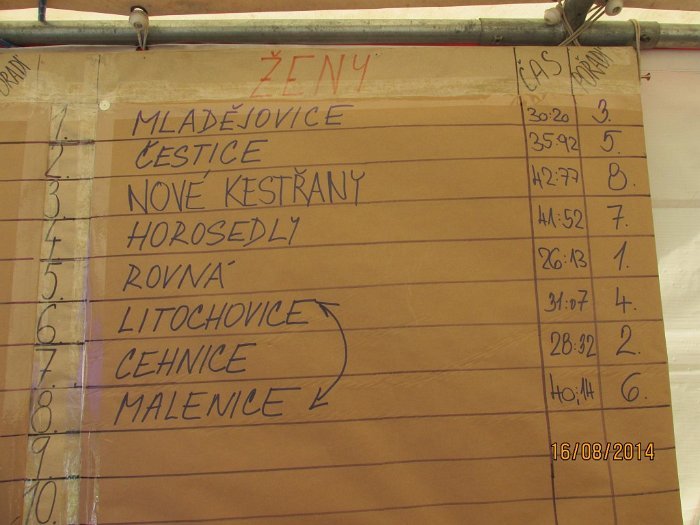 ŽENY ČAS POŘADÍ
1. MLADĚJOVICE 30:20 3.
2. ČESTICE 35:92 5.
3. NOVÉ KESTŘANY 42:77 8.
4. HOROSEDLY 41:52 7.
5. ROVNÁ 26:13 1.
6. LITOCHOVICE 31:07 4.
7. CEHNICE 28:32 2.
8. MALENICE 40:14 6.
9.
10.
16/08/2014